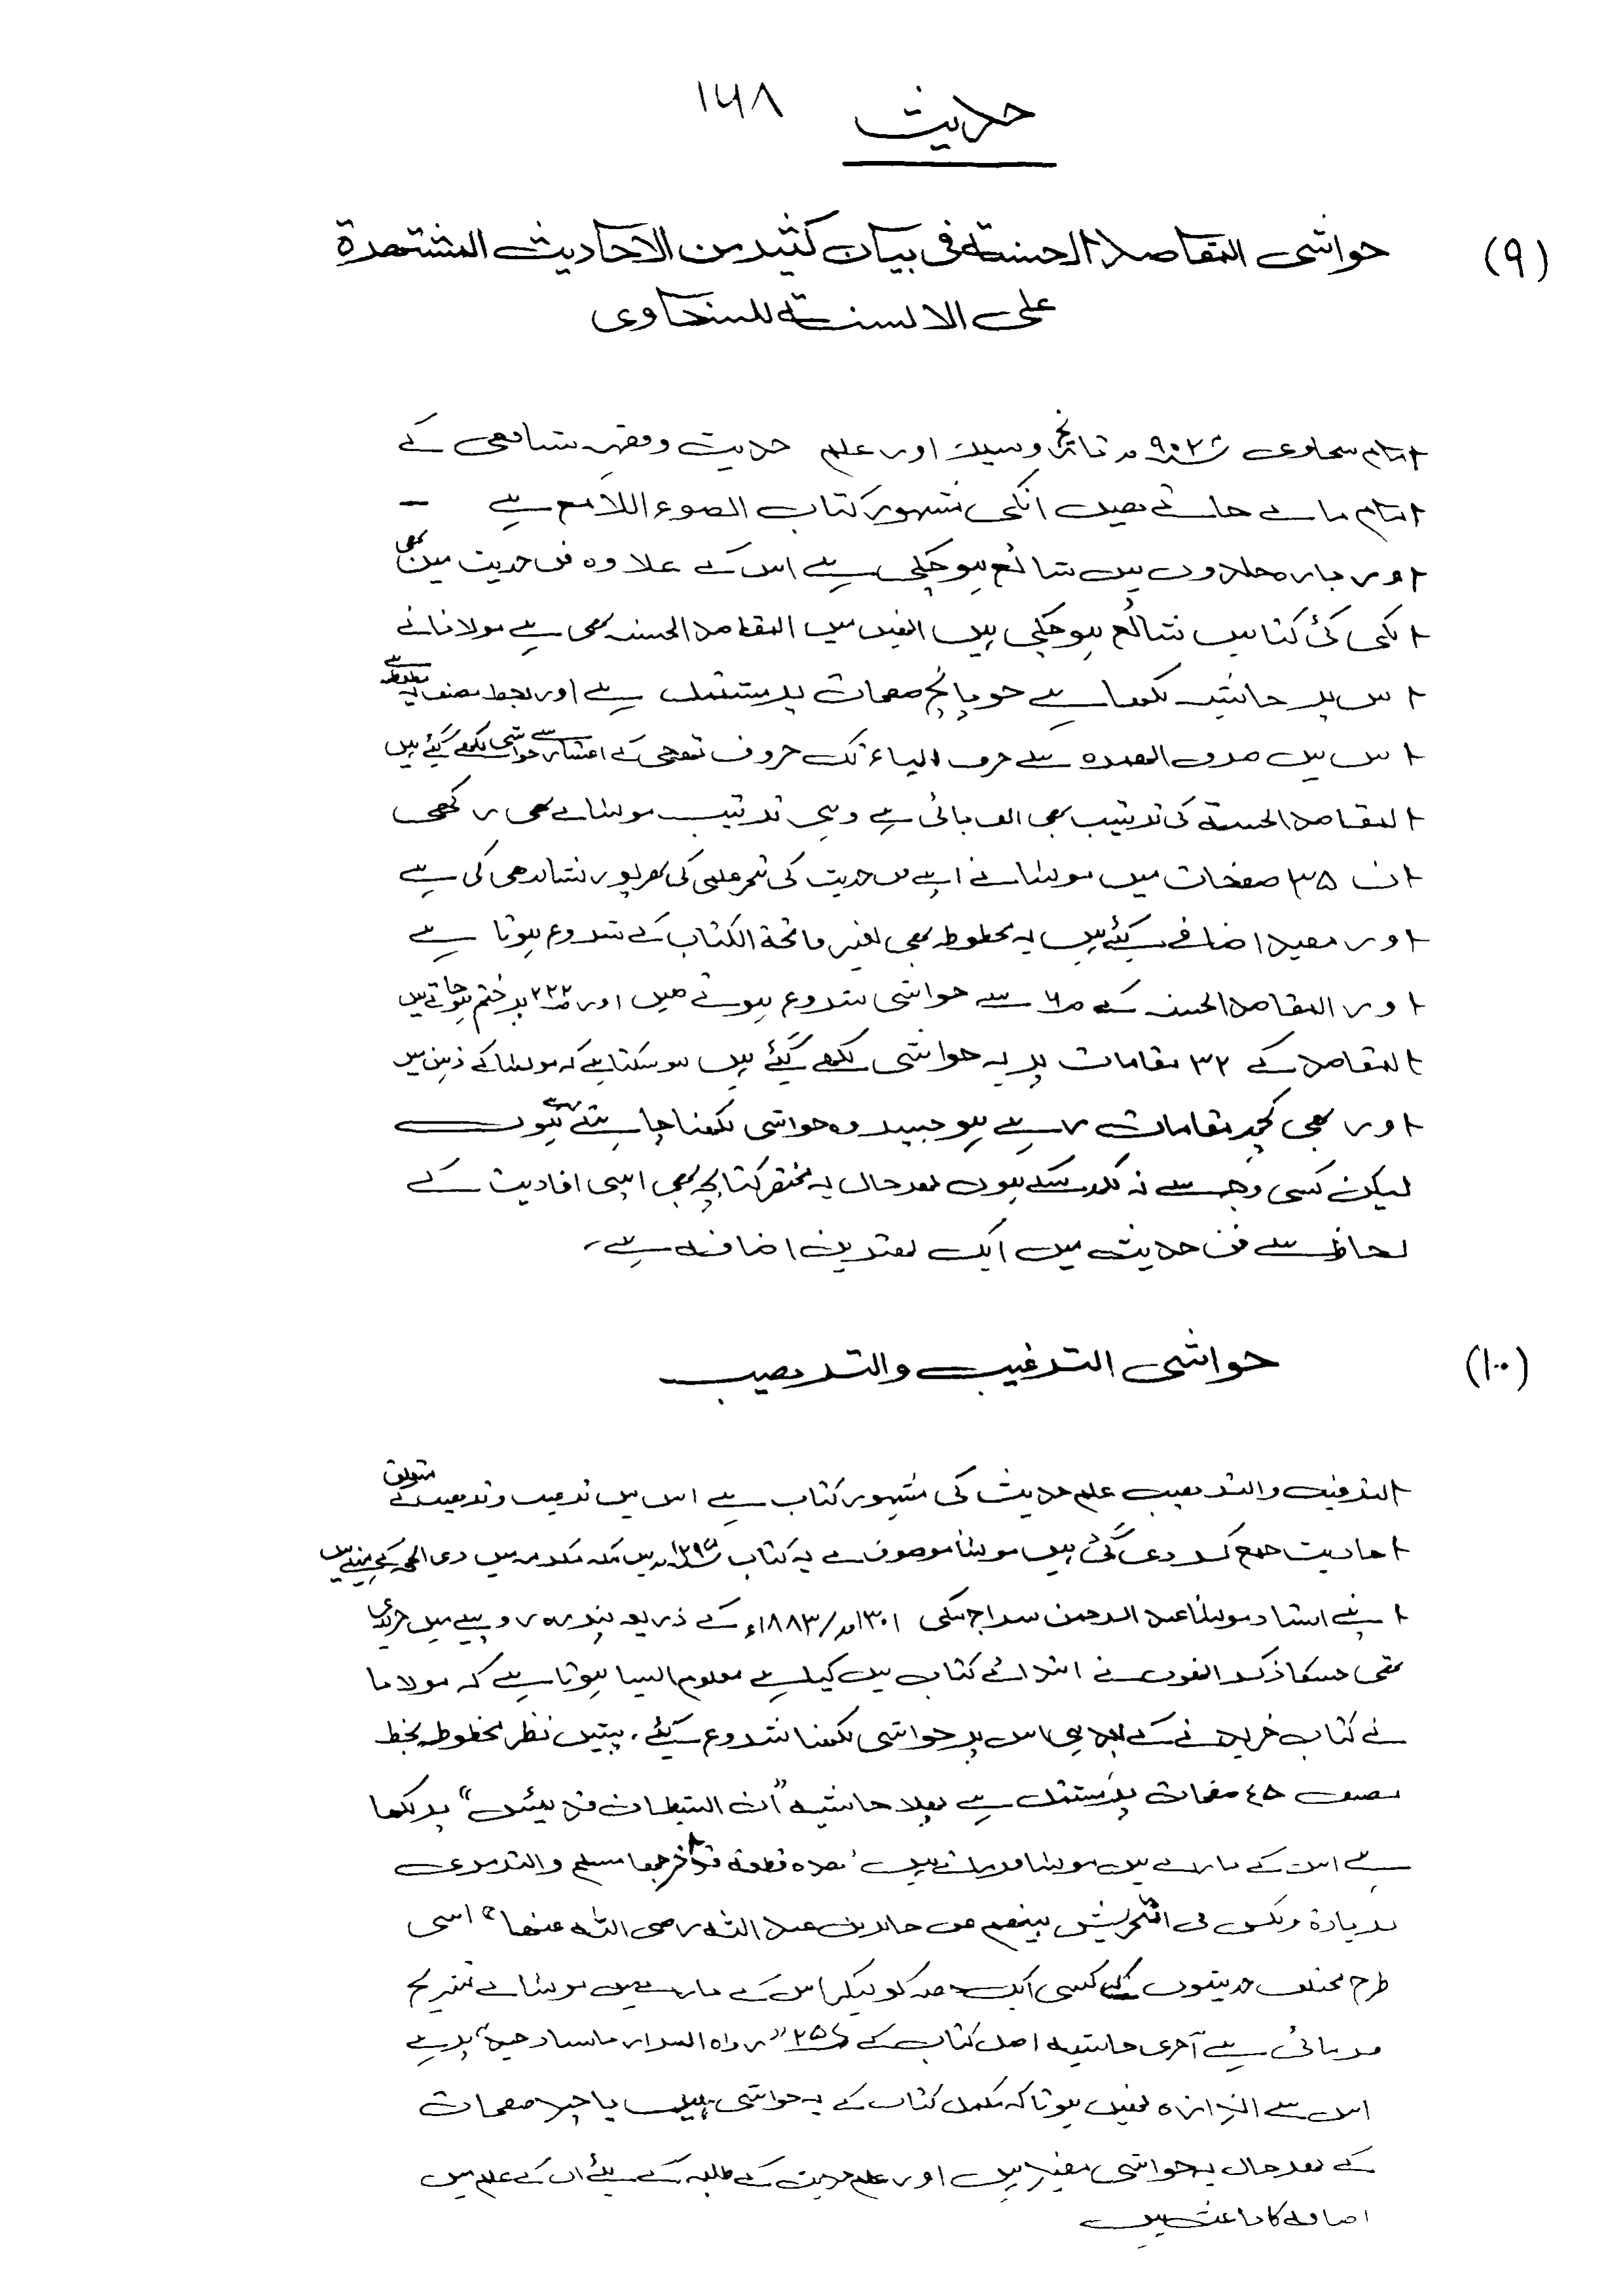 ۱۶۸
حدیث
(۹) حواشی المقاصد الحسنة فی بیان کثیر من الاحادیث المشتهرة
علی الالسنة للسخاوی
امام سخاوی ۹۰۲ھ تاریخ وسیر اور علم حدیث وفقہ شافعی کے
امام مانے جاتے ھیں انکی مشہور کتاب الضوء اللامع ہے ۔
اور بارہ جلدوں میں شائع ہوچکی ہے اس کے علاوہ فن حدیث میں بھی
انکی کئی کتابیں شائع ہوچکی ہیں انھیں میں المقاصد الحسنہ بھی ہے مولانا نے
اس پر حاشیہ لکھا ہے جو پانچ صفحات پر مشتمل ہے اور بخط مصنف ہے
اس میں حرف الھمزہ سے حرف الیاء تک حروف تھجی کے اعتبار سے حواشی لکھے گئے ہیں
المقاصد الحسنة کی ترتیب بھی الف بائی ہے وہی ترتیب مولٰنا نے بھی رکھی
ان ۳۵ صفحات میں مولٰنا نے اپنے فن حدیث کی تبحر علمی کی بھرپور نشاندھی کی ہے
اور مفید اضافے کئے ہیں یہ مخطوطہ بھی بغیر فاتحة الکتاب کے شروع ہوتا ہے
اور المقاصد الحسنہ کے ص۶ سے حواشی شروع ہوتے ھیں اور ص۲۲۲ پر ختم ہوجاتے ہیں
المقاصد کے ۳۲ مقامات پر یہ حواشی لکھے گئے ہیں ہوسکتا ہے کہ مولٰنا کے ذہن میں
اور بھی کچھ مقامات رہے ہو جسپر وہ حواشی لکھنا چاہتے رہے ہوں
لیکن کسی وجہ سے نہ لکھ سکے ہوں بھرحال یہ مختصر کتابچہ بھی اپنی افادیت کے
لحاظ سے فن حدیث میں ایک بھترین اضافہ ہے۔
(۱۰) حواشی الترغیب والترھیب
الترغیب والترھیب علم حدیث کی مشہور کتاب ہے اس میں ترغیب و ترھیب کے متعلق
احادیث جمع کردی گئی ہیں مولٰنا موصوف نے یہ کتاب ۱۲۹۵ھ میں مکہ مکرمہ میں ذی الحجہ کے مہینے میں
اپنے استاد مولٰنا عبد الرحمن سراج مکی ۱۳۰۱ھ/۱۸۸۳ء کے ذریعہ پندرہ روپیے میں خریدی
تھی جسکا ذکر انھوں نے ابتدائے کتاب میں کیا ہے معلوم ایسا ہوتا ہے کہ مولانا
نے کتاب خریدنے کے بعد ہی اس پر حواشی لکھنا شروع کیئے۔ پیش نظر مخطوطہ بخط
مصنف ۴۵ صفحات پر مشتمل ہے پھلا حاشیہ "ان الشیطان قد یئس" پر لکھا
ہے اس کے بارے میں مولٰنا فرماتے ہیں 'ھذہ قطعة قد اخرجھا مسلم والترمذی
بزیادة ولکن فی التحریش بینھم عن جابر بن عبد اللہ رضی اللہ عنھما" اسی
طرح مختلف حدیثوں کے کسی ایک حصہ کو لیکر اس کے بارے میں مولٰنا نے تشریح
فرمائی ہے آخری حاشیہ اصل کتاب کے ص۲۵۶ "رواہ البزار باسناد جید" پر ہے
اس سے اندازہ نھیں ہوتا کہ مکمل کتاب کے یہ حواشی ہیں یا چند صفحات
کے بھرحال یہ حواشی مفید ہیں اور علم حدیث کے طلبہ کے لئے ان کے علم میں
اضافہ کا باعث ہیں